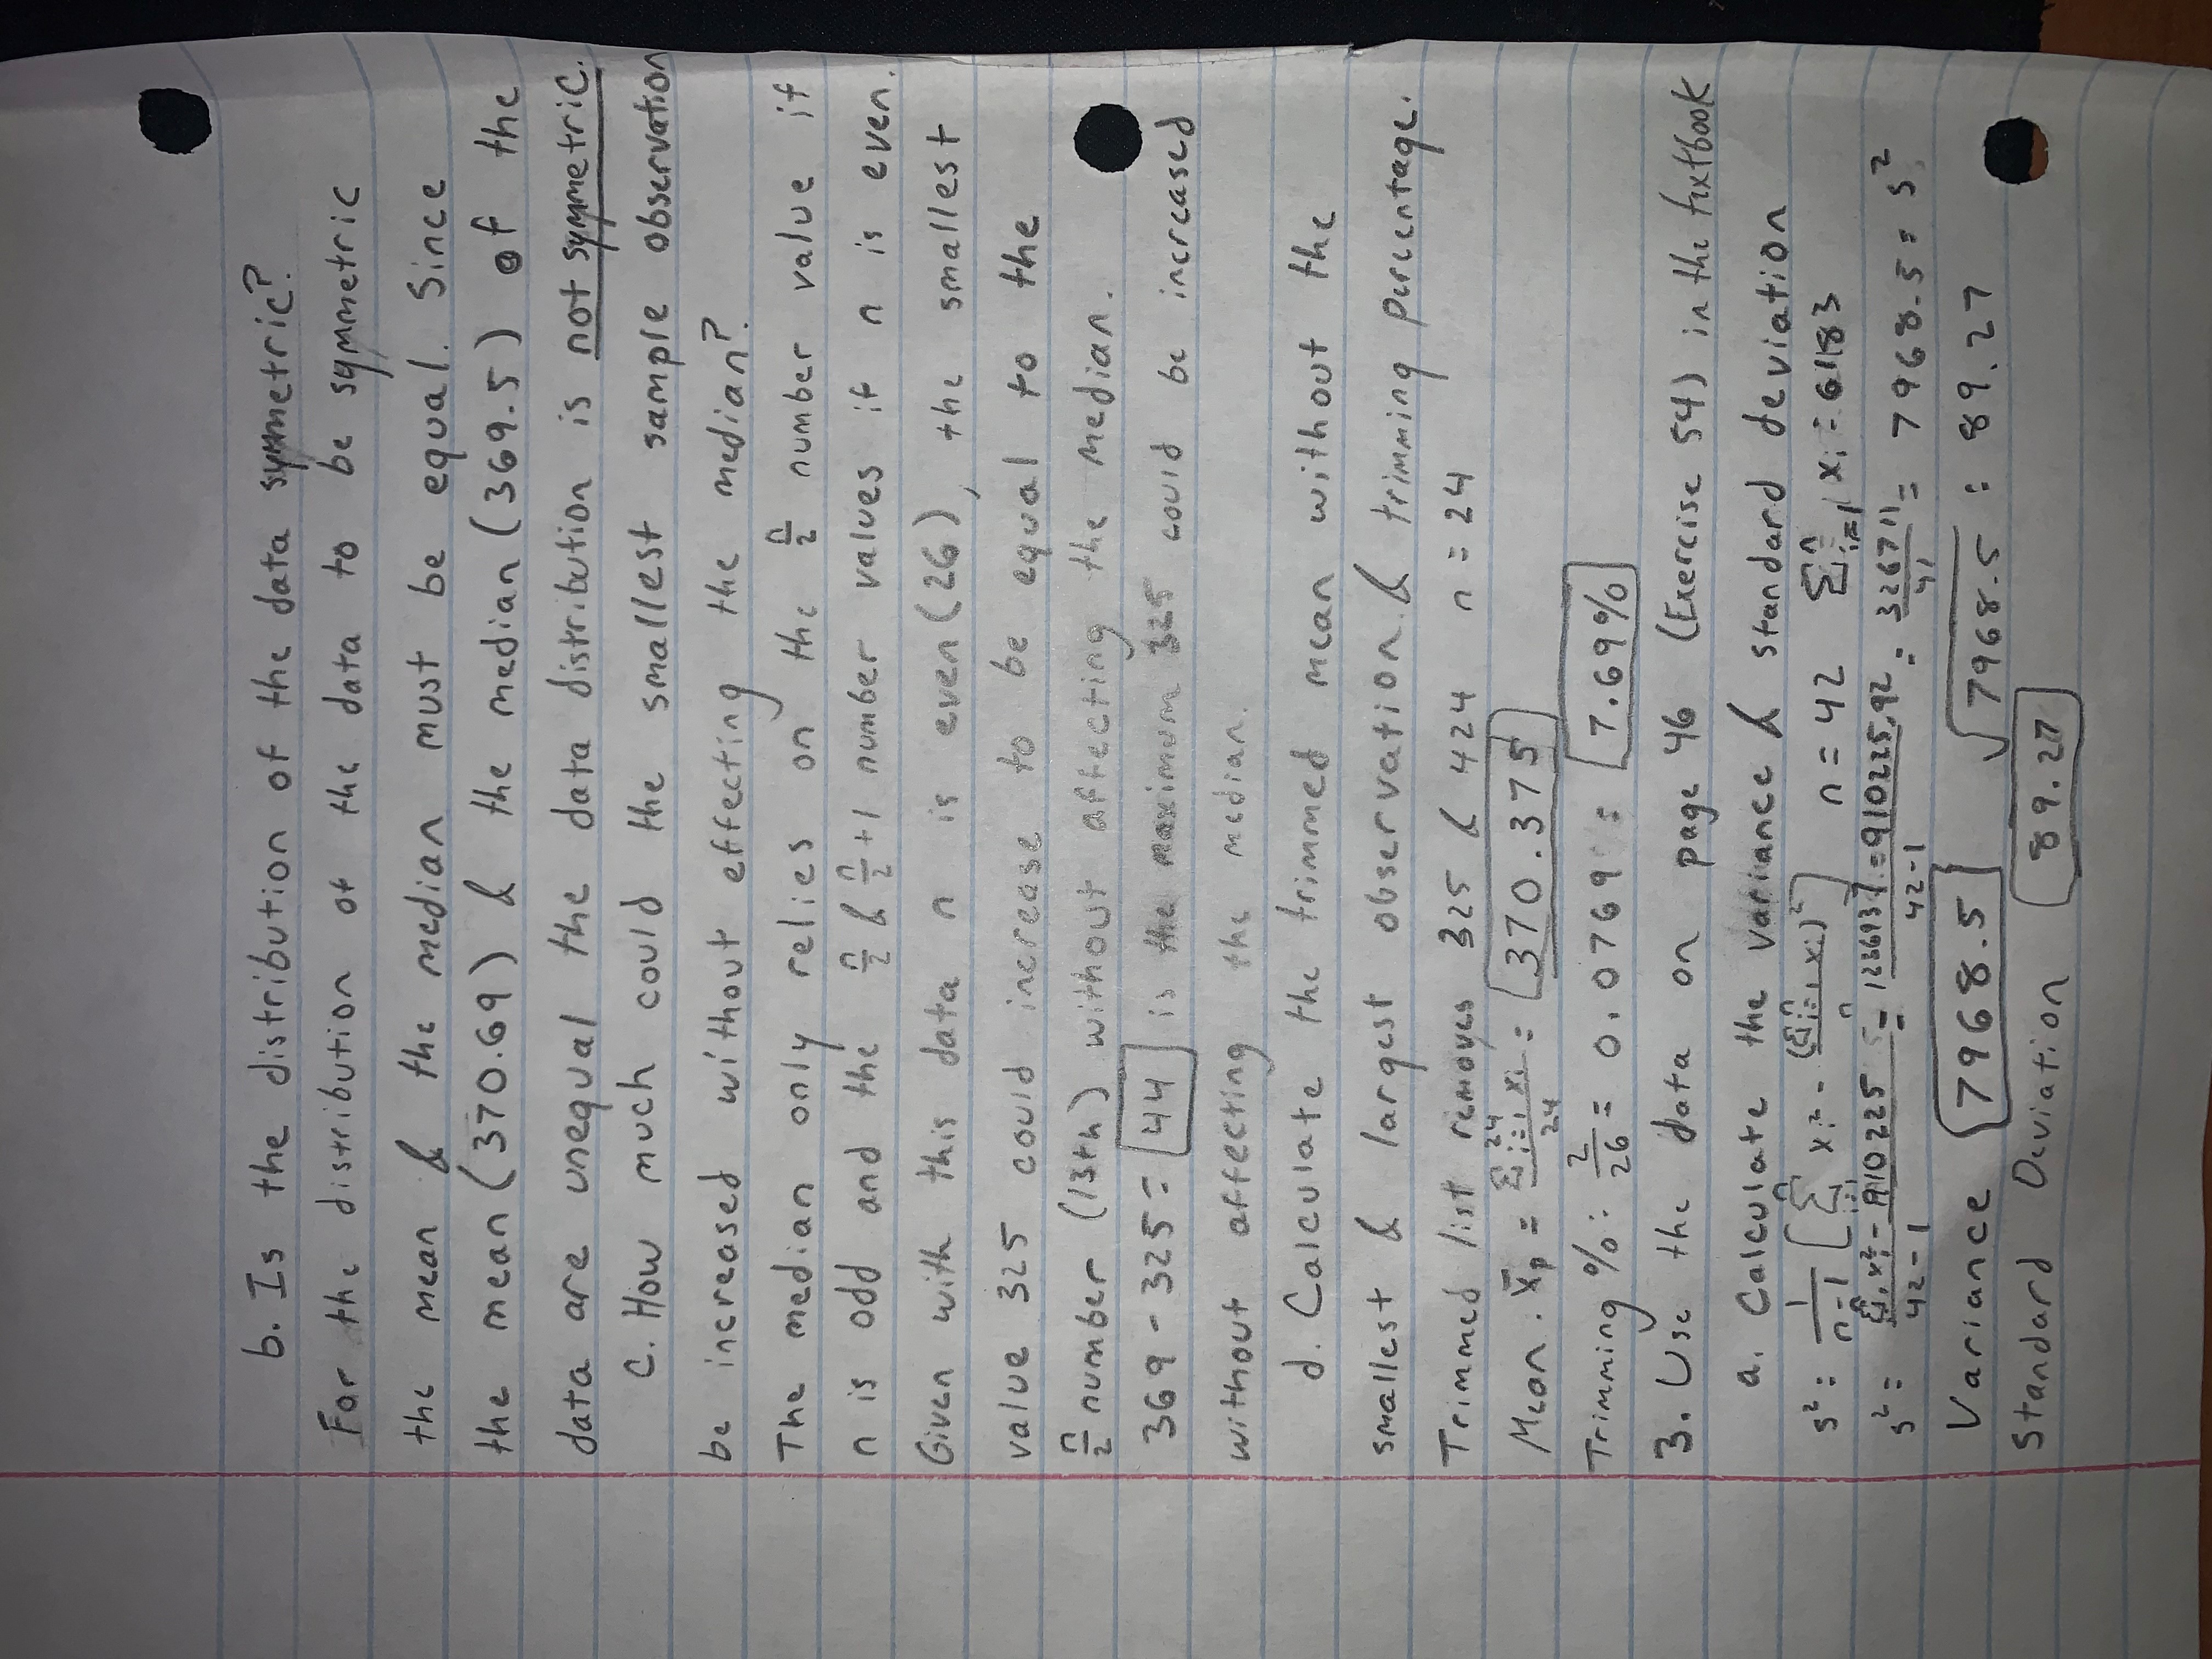 b. Is the distribution of the data symmetric?
For the distribution of the data to be symmetric
the mean & the median must be equal. Since
the mean (370.69) & the median (369.5) of the
data are unequal the data distribution is not symmetric.
c. How much could the smallest sample observation
be increased without effecting the median?
The median only relies on the n/2 number value if
n is odd and the n/2 & n/2 +1 number values if n is even.
Given with this data n is even (26), the smallest
value 325 could increase to be equal to the
n/2 number (13th) without affecting the median.
369 - 325 = 44 is the maximum 325 could be increased
without affecting the median.
d. Calculate the trimmed mean without the
smallest & largest observation & trimming percentage.
Trimmed list removes 325 & 424 n = 24
Mean. x̄p = Σ^24 i=1 xi / 24 = 370.375
Trimming %: 2/26 = 0.0769 = 7.69%
3. Use the data on page 46 (Exercise 54) in the textbook
a. Calculate the variance & standard deviation
s² = 1/(n-1) [Σ^n i=1 xi² - (Σ^n i=1 xi)²/n] n = 42 Σ^n i=1 xi = 6183
s² = 910225 / 42-1 = 910225.92 / 42-1 = 326711 / 41 = 7968.5 = s²
Variance 7968.5 √7968.5 = 89.27
Standard Deviation 89.27